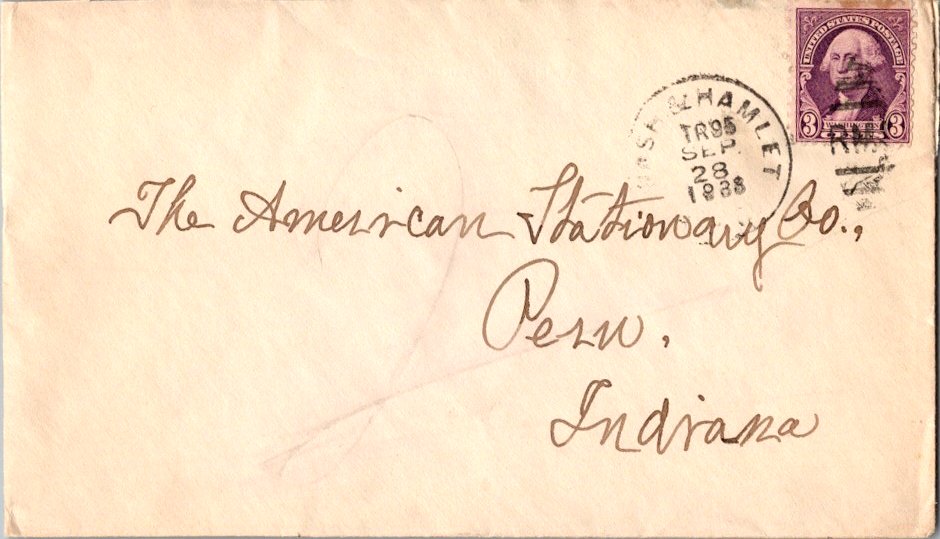 UNITED STATES POSTAGE
3 WASHINGTON 3
WASH & HAMLET
TR 95
SEP.
28
1938
The American Stationary Co.,
Peru,
Indiana